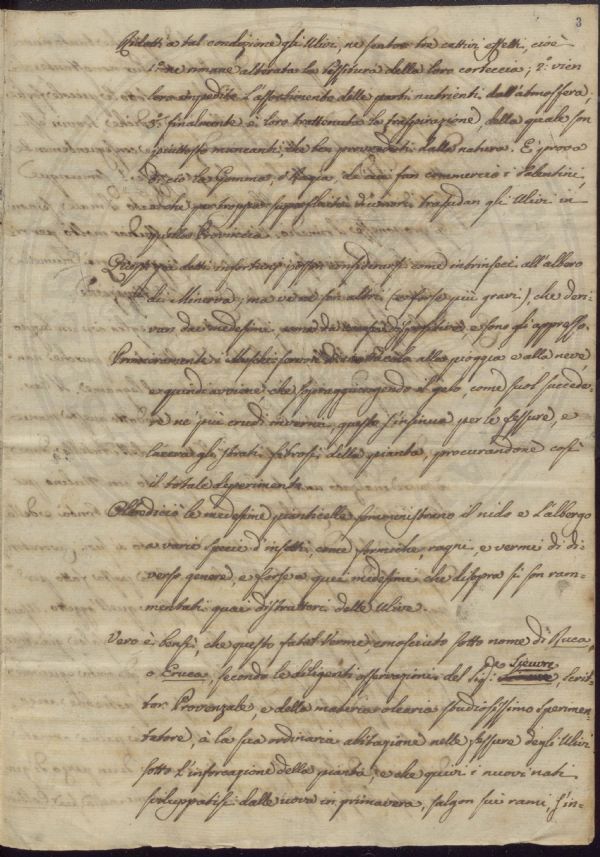 3
Ridotti a tal condizione gli Ulivi, ne senton tre cattivi effetti, cioè
1.° ne rimane alterata la tessitura della loro corteccia; 2.° vien
loro impedito l'assorbimento delle parti nutrienti dall'atmosfera;
3.° finalmente è loro trattenuta la traspirazione, della quale son
piuttosto mancanti, che ben provveduti dalla natura. E prova
di ciò la Gomma, o Ragia, di cui fan commercio i Salentini
e che purtroppo umori trasudan gli Ulivi in
quella Provincia.
Questi già detti posson considerarsi come intrinseci all'albero
di Minerva, ma ve ne son altri (e forse più gravi), che deri-
van dai medesimi, come da e sono gli appresso.
Primieramente i alla pioggia e alla neve,
e quindi avviene, che sopraggiungendo il gelo, come suol succede-
re ne' più crudi inverni, questo s'insinua per le fessure, e
lacera gli strati fibrosi della pianta, procurandone così
il totale deperimento.
Oltredicciò le medesime pianticelle somministrano il nido e l'albergo
a varie specie d'insetti, come formiche, ragni, e vermi di di-
verso genere, e forse a quei medesimi che disopra si son ram-
mentati quai distruttori delle Ulive.
Vero è bensì, che questo fatal Verme conosciuto sotto nome di Ruca,
o Eruca, secondo le diligenti osservazioni del Sig.r de Sieuvre, Scrit-
tor Provenzale, e della materia olearia studiosissimo sperimen-
tatore, à la sua ordinaria abitazione nelle fessure degli Ulivi
sotto l'inforcazione della pianta, e che quivi i nuovi nati
sviluppatisi dalle uova in primavera, salgon sui rami, s'in-